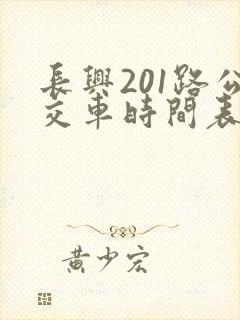 長興201路公
交車時間表
黃少宏